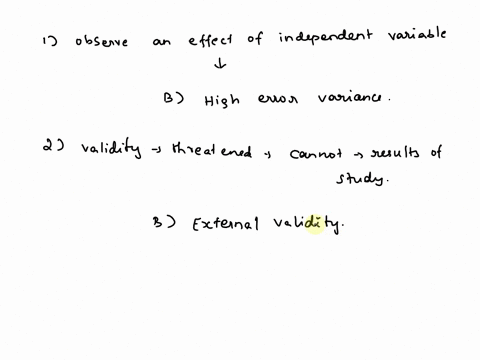 1) observe an effect of independent variable
↓
B) High error variance.
2) validity → threatened → cannot → results of
study.
B) External validity.